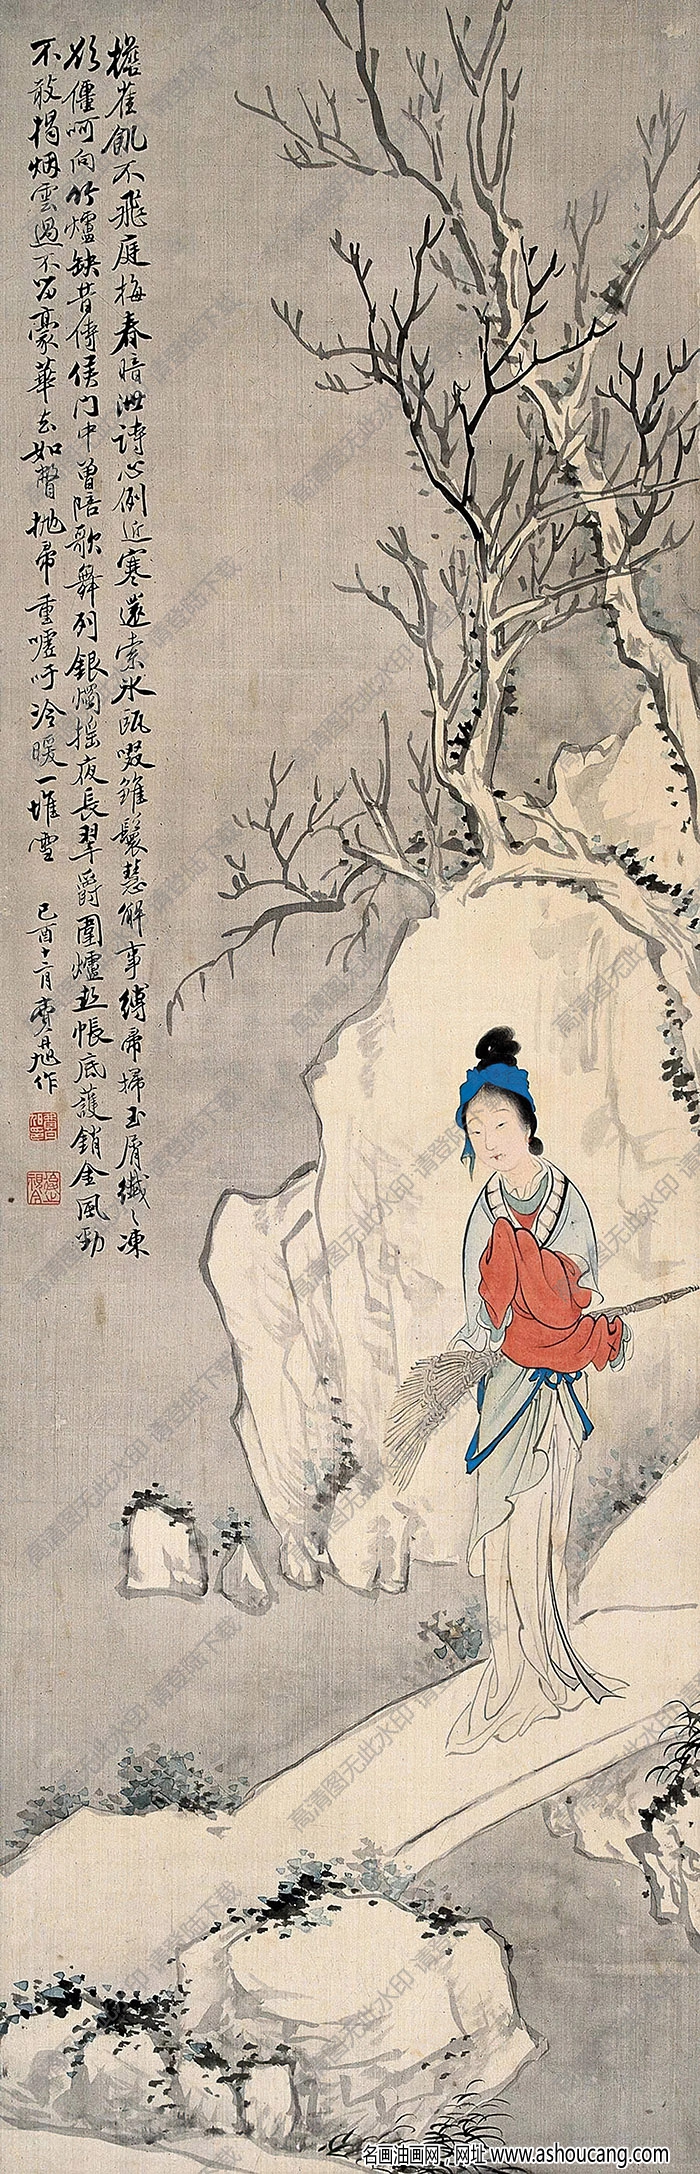 檐雀飢不飛庭梅春暗泄詩心例近寒還索冰甌啜雛鬟慧解事縛帚掃玉屑纖纖凍
欲僵呵向竹爐缺昔侍侯门中曾陪歌舞列銀燭摇夜長翠爵圍爐热帳底護銷金風勁
不敢揭烟雲過不留豪華去如瞥抛帚重嘘吁冷暖一堆雪
己酉十二月費旭作
高清图无此水印 请登陆下载
名画油画网，网址 www.ashoucang.com